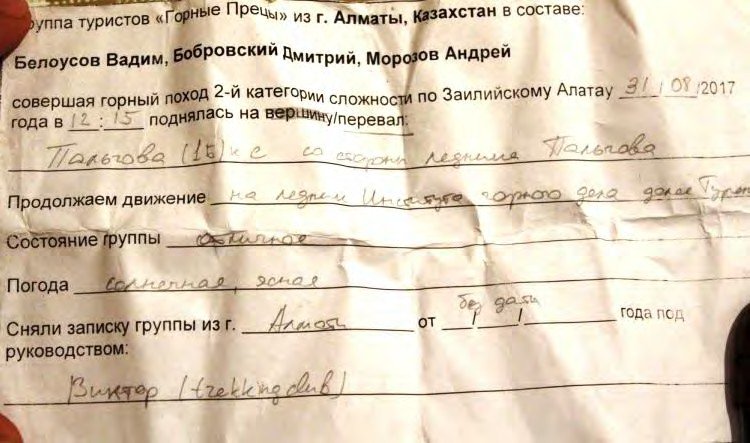 руппа туристов «Горные Прецы» из г. Алматы, Казахстан в составе:
Белоусов Вадим, Бобровский Дмитрий, Морозов Андрей
совершая горный поход 2-й категории сложности по Заилийскому Алатау 31/08/2017
года в 12:15 поднялась на вершину/перевал:
Пальгова (1Б) со стороны ледника Пальгова
Продолжаем движение на ледник Института горного дела далее
Состояние группы отличное
Погода солнечная, ясная
Сняли записку группы из г. Алматы от без даты / / года под
руководством:
Виктор (trekkingclub)